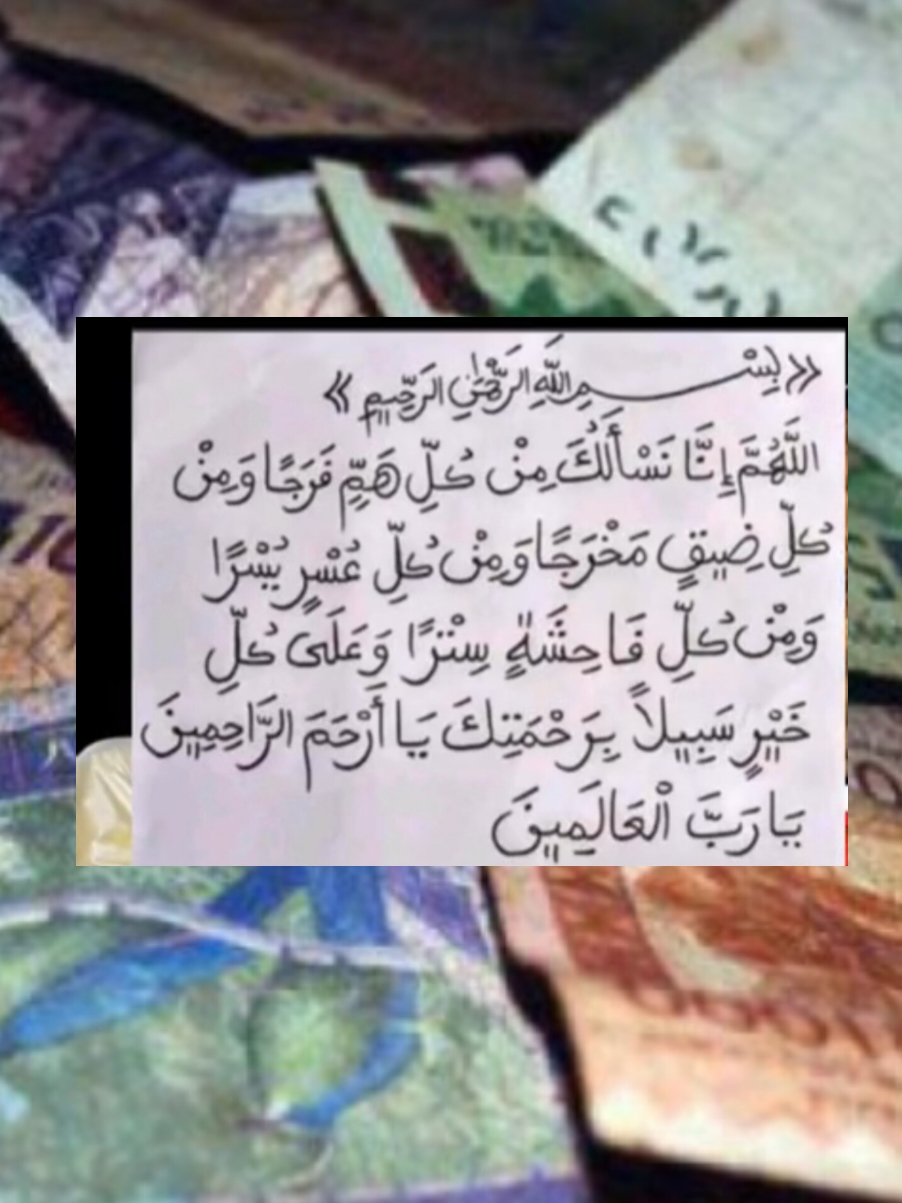 «بِسْــــمِ اللَّهِ الرَّحْمَٰنِ الرَّحِّيمِ»
اللَّهُمَّ إِنَّا نَسْأَلُكَ مِنْ كُلِّ هَمٍّ فَرَجًا وَمِنْ
كُلِّ ضِيقٍ مَخْرَجًا وَمِنْ كُلِّ عُسْرٍ يُسْرًا
وَمِنْ كُلِّ فَاحِشَةٍ سِتْرًا وَعَلَى كُلِّ
خَيْرٍ سَبِيلاً بِرَحْمَتِكَ يَا أَرْحَمَ الرَّاحِمِينَ
يَا رَبَّ الْعَالَمِينَ